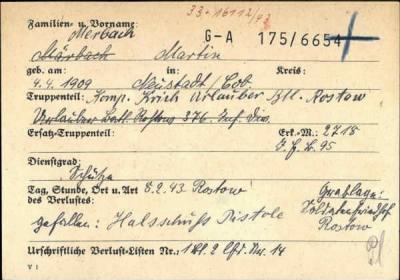 33-16112/43
Familien- u. Vorname:
Merbach
G-A 175/6654
Märbach Martin
geb. am: in: Kreis:
4.4.1909 Neustadt/Cob.
Truppenteil: Komp. Krich Urlauber Btl. Rostow
Urlauber Batt. Rostow 376. Inf. Div.
Ersatz-Truppenteil: Erk.-M.: 2718
J.E.B. 95
Dienstgrad:
Schütze
Tag, Stunde, Ort u. Art 8.2.43 Rostow Grablage:
des Verlustes: Soldatenfriedhof
gefallen: Halsschuß Pistole Rostow
Urschriftliche Verlust-Listen Nr.: 1 Lfd. Nr. 14
V 1